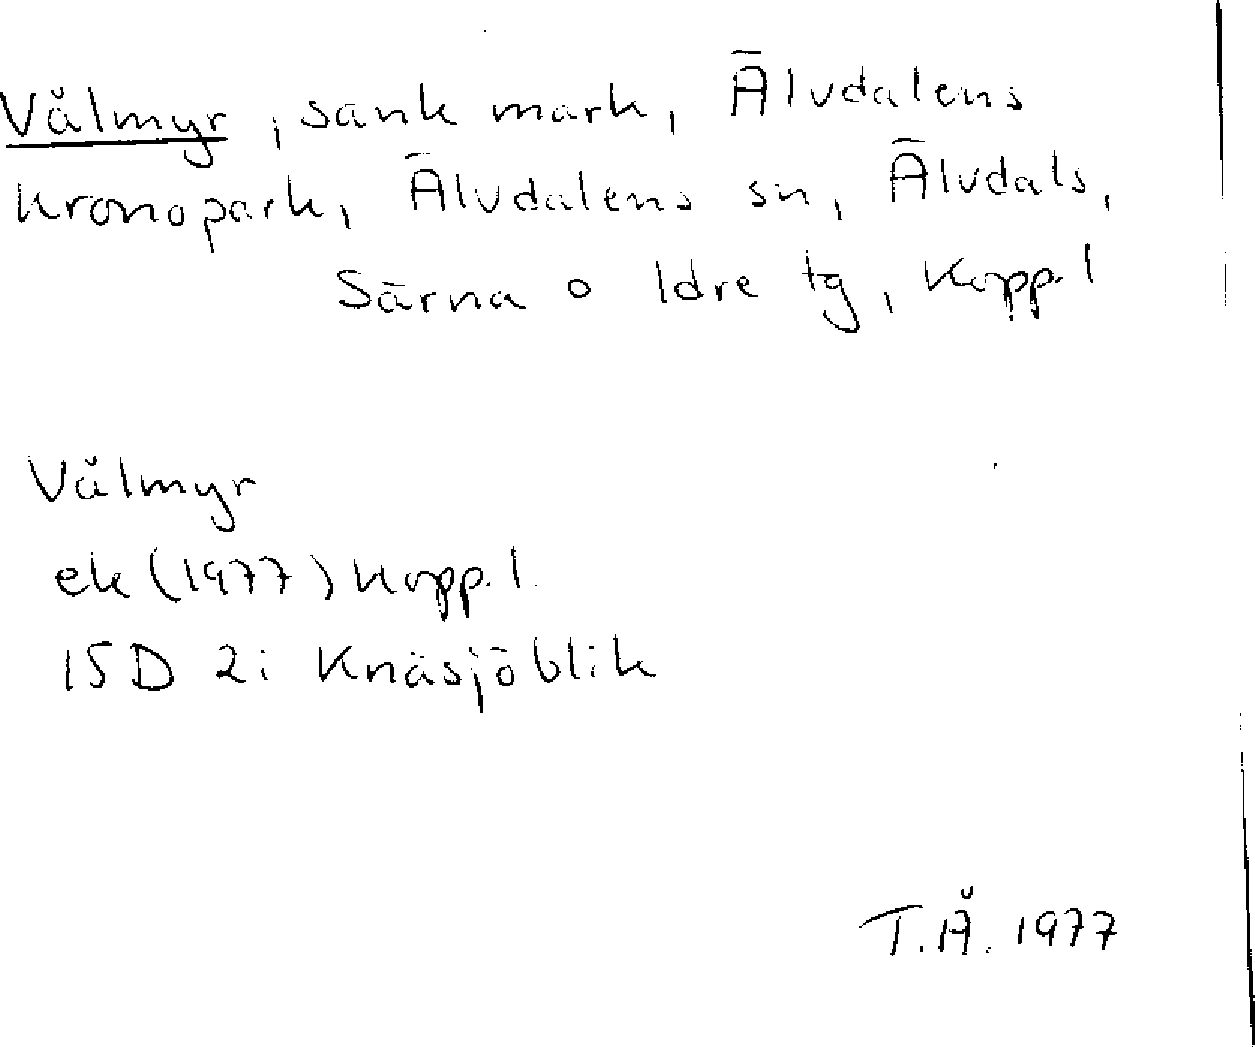 Vålmyr, sank mark, Älvdalens
kronopark, Älvdalens sn, Älvdals,
Särna o Idre tg, Kopp. l
Vålmyr
ek (1977) Kopp. l.
15D 2i Knäsjöblik
T.Å. 1977